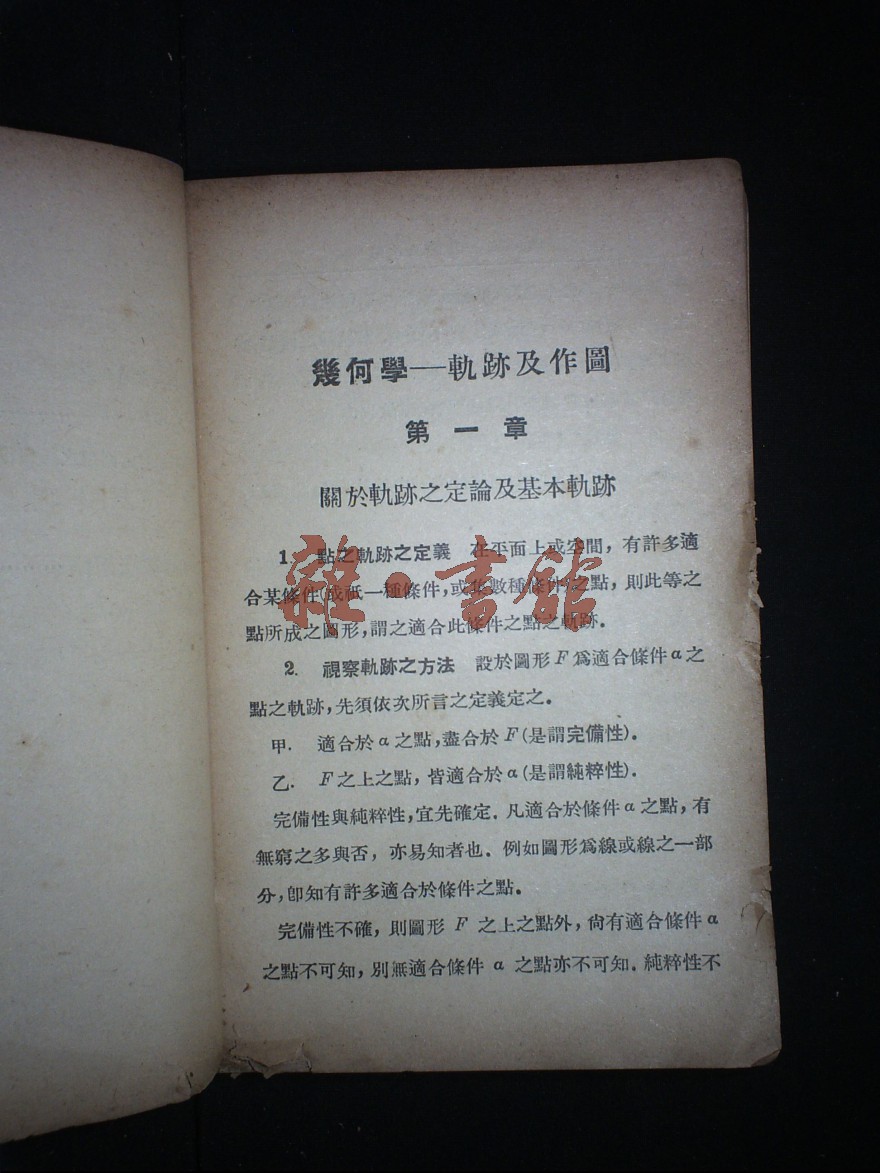 幾何學——軌跡及作圖
第一章
關於軌跡之定論及基本軌跡
1. 點之軌跡之定義 在平面上或空間，有許多適
合某條件(或祇一種條件，或集數種條件)之點，則此等之
點所成之圖形，謂之適合此條件之點之軌跡．
2. 視察軌跡之方法 設於圖形 F 爲適合條件 α 之
點之軌跡，先須依次所言之定義定之．
甲． 適合於 α 之點，盡合於 F (是謂完備性)．
乙． F 之上之點，皆適合於 α (是謂純粹性)．
完備性與純粹性，宜先確定．凡適合於條件 α 之點，有
無窮之多與否，亦易知者也．例如圖形爲線或線之一部
分，卽知有許多適合於條件之點．
完備性不確，則圖形 F 之上之點外，尙有適合條件 α
之點不可知，別無適合條件 α 之點亦不可知．純粹性不
雜·書館